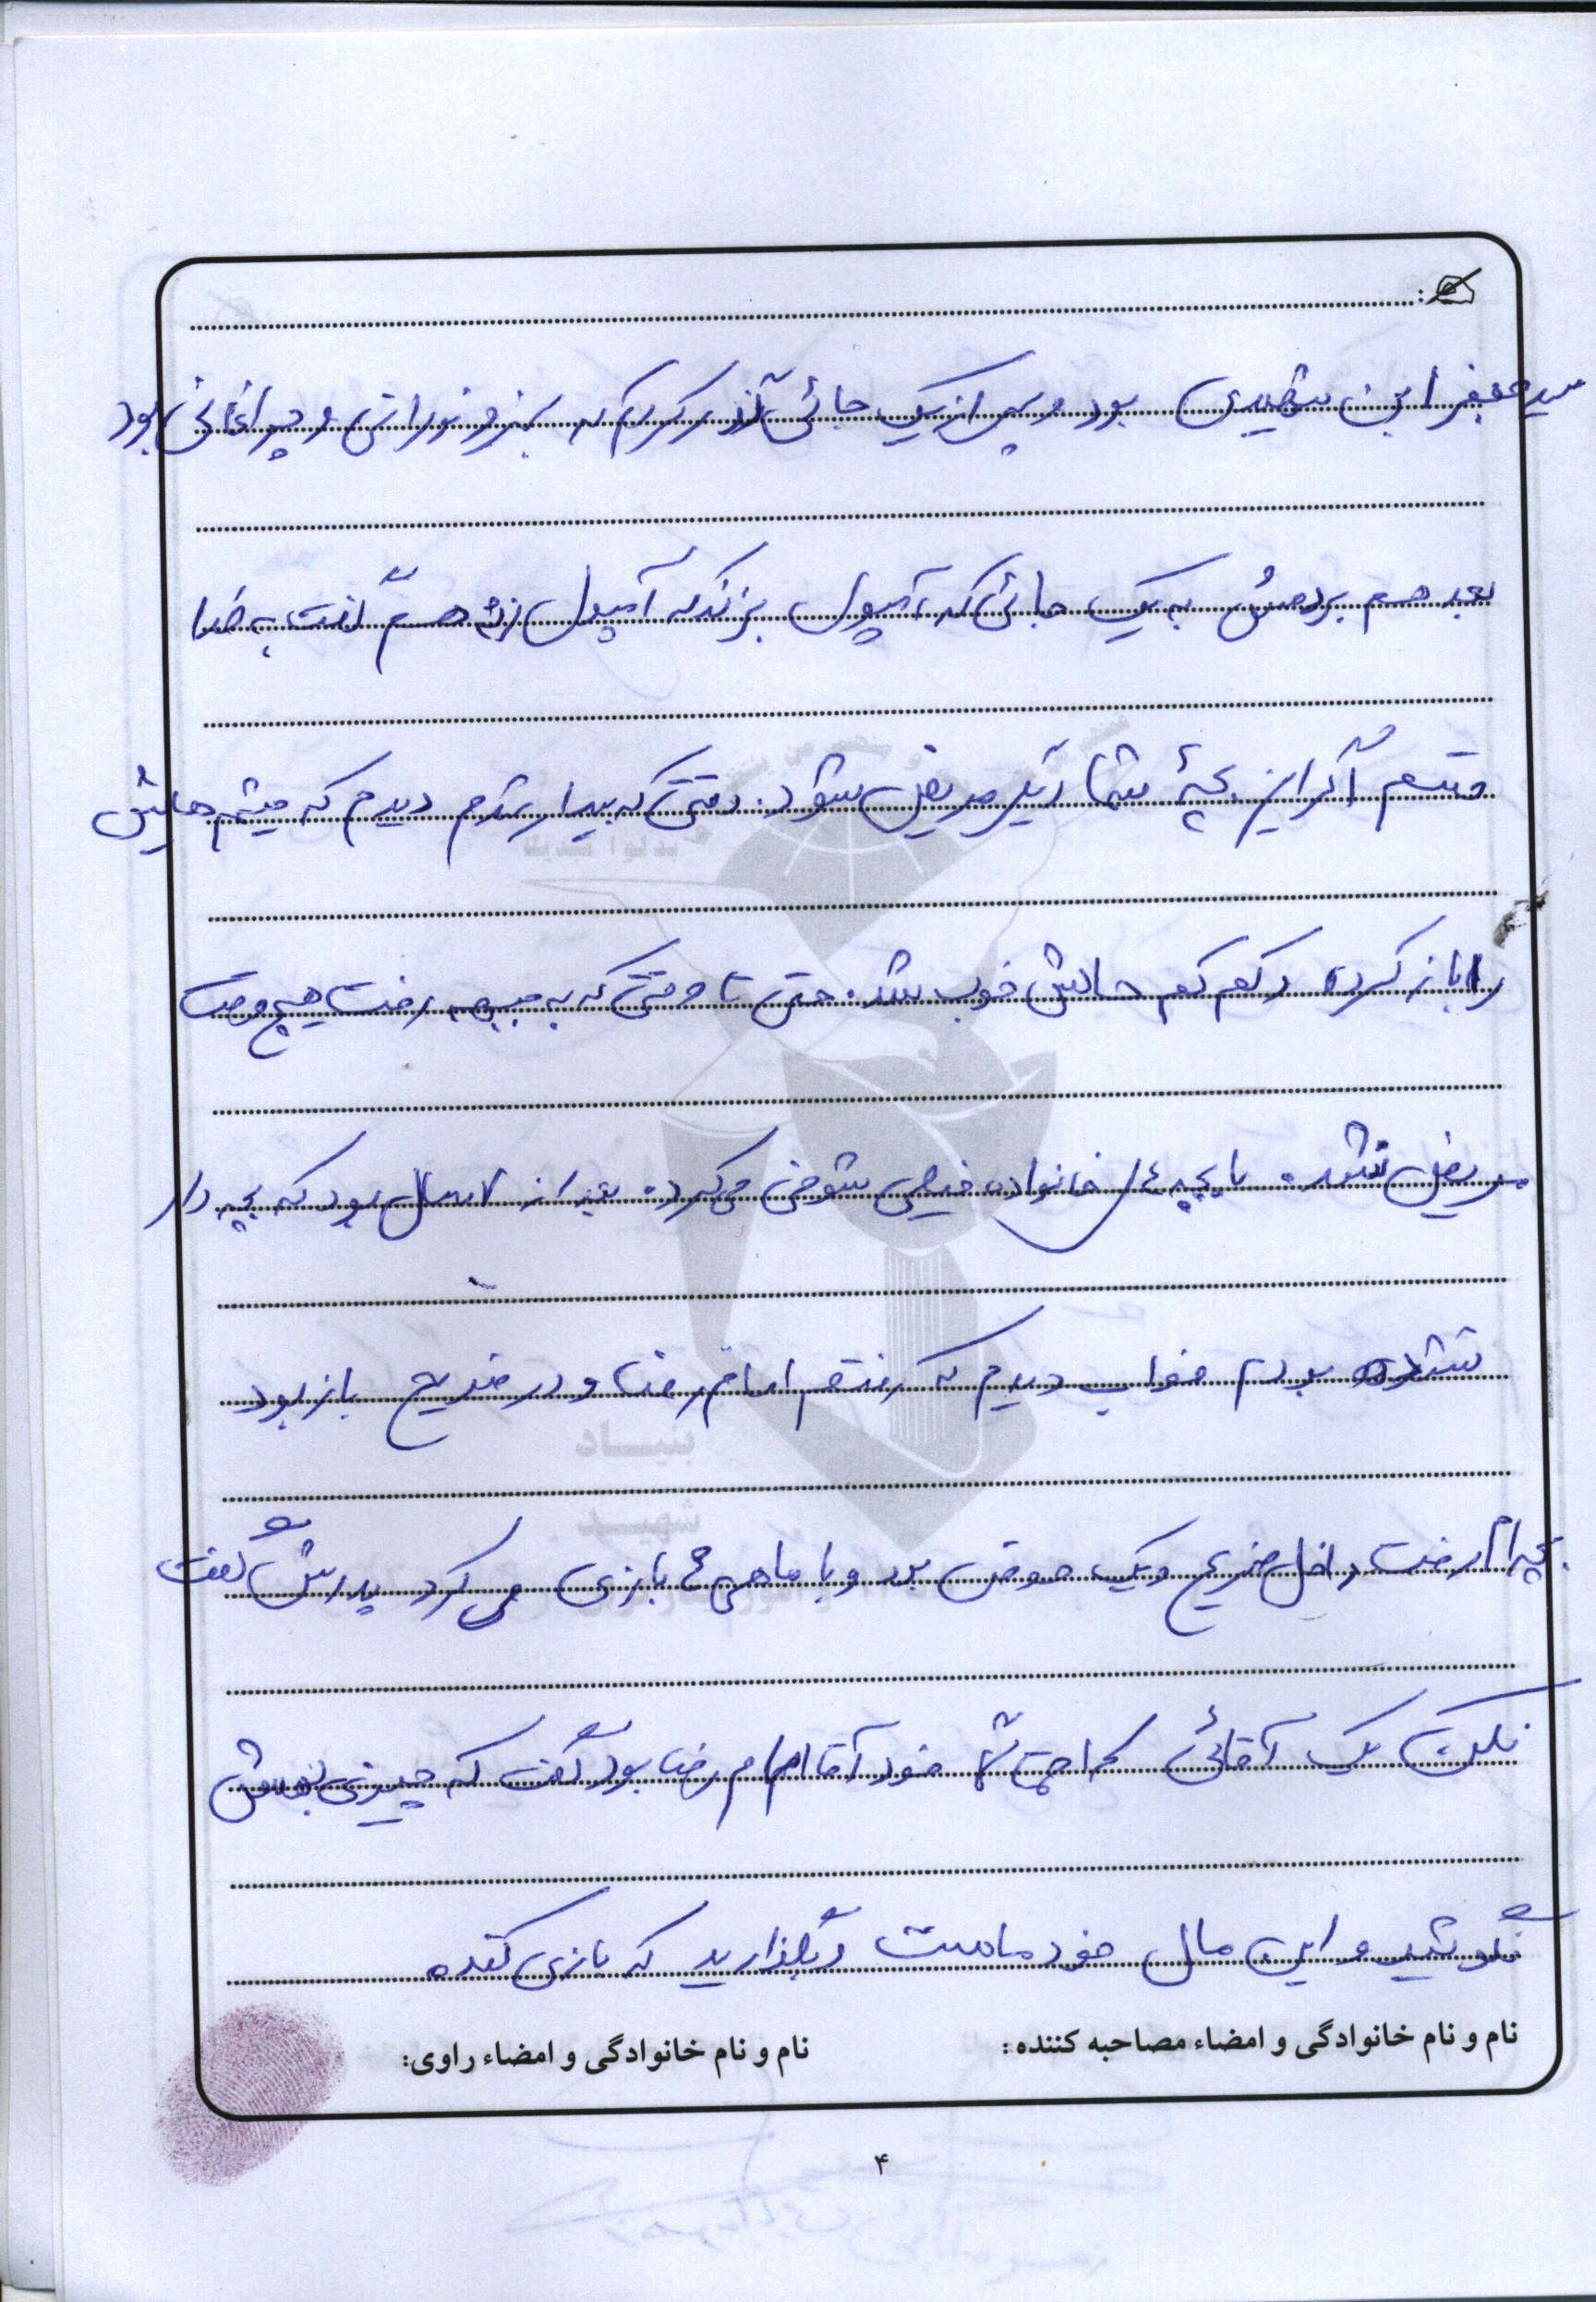 سید جعفر ابن شهیدی بود و پس از یک جائی گذر کردیم که سبز و نورانی و چراغانی بود
بعد هم بردمش به یک جائی که آمپول بزند که آمپول زن هم گفت به خدا
قسم اگر این بچۀ شما دیگر مریض شود. وقتی که بیدار شدم دیدم که چشم هایش
را باز کرده و کم کم حالش خوب شد. حتی تا وقتی که به جبهه رفت هیچ وقت
مریض نشد. با بچه های خانواده خیلی شوخی می‌کرد. بعد از ۷ سال بود که بچه دار
نشده بودم خواب دیدم که رفتم امام رضا و در ضریح باز بود
بچه ام رفت داخل ضریح و یک حوض بود و با ماهی ها بازی می کرد پدرش گفت
نکن یک آقائی که احتمالاً خود آقا امام رضا بود گفت که چیزی بهش
نگوئید و این مال خود ماست و بگذارید که بازی کند.
نام و نام خانوادگی و امضاء مصاحبه کننده:
نام و نام خانوادگی و امضاء راوی:
۴